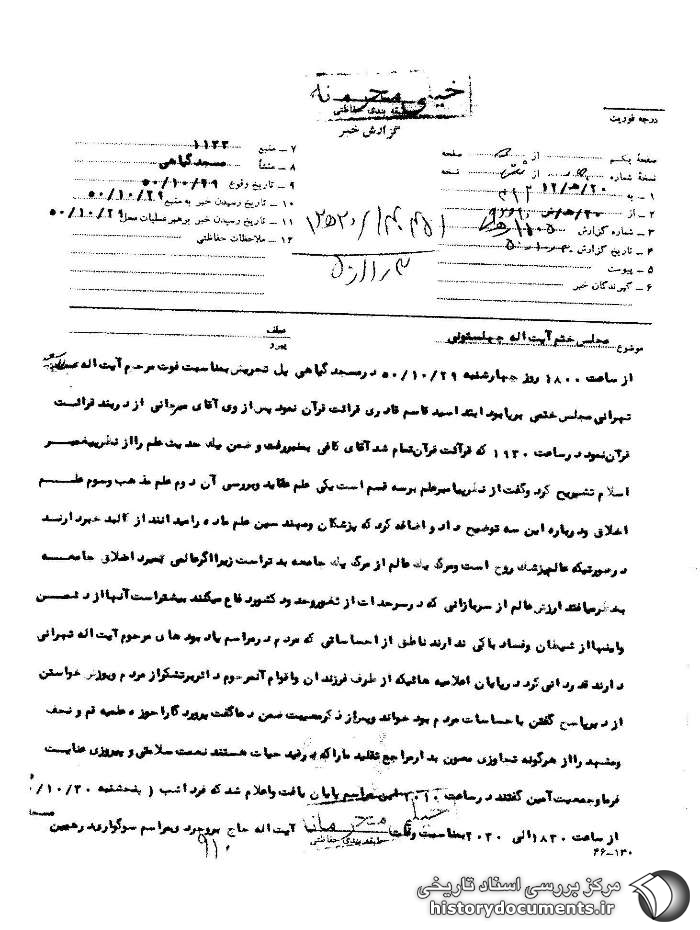 خیلی محرمانه
طبقه بندی حفاظتی
گزارش خبر
درجه فوریت
صفحهٔ یکم از صفحه
نسخهٔ شماره از نسخه
۱ – به ۳۱۲ ۲۰/ه‍/۱۲
۲ – از ۲۰/ه‍
۳ – شماره گزارش
۴ – تاریخ گزارش
۵ – پیوست
۶ – گیرندگان خبر
۷ – منبع ۱۱۳۳
۸ – منشأ مسجد گیاهی
۹ – تاریخ وقوع ۵۰/۱۰/۲۹
۱۰ – تاریخ رسیدن خبر به منبع ۵۰/۱۰/۲۹
۱۱ – تاریخ رسیدن خبر برهبر عملیات محل ۵۰/۱۰/۲۹
۱۲ – ملاحظات حفاظتی
موضوع مجلس ختم آیت اله چهلستونی
عطف
پیرو
از ساعت ۱۸۰۰ روز چهارشنبه ۵۰/۱۰/۲۹ در مسجد گیاهی پل تجریش بمناسبت فوت مرحوم آیت اله
تهرانی مجلس ختمی برپا بود ابتدا سید قاسم قادری قرائت قرآن نمود پس از وی آقای میردانی از دربند قرائت
قرآن نمود در ساعت ۱۹۳۰ که قرآئت قرآن تمام شد آقای کافی بمنبر رفت و ضمن یک حدیث علم را از نظر پیغمبر
اسلام تشریح کرد و گفت از نظر پیامبر علم بر سه قسم است یکی علم عقاید و بررسی آن دوم علم مذهب و سوم علم
اخلاق و درباره این سه توضیح داد و اضافه کرد که پزشکان و مهندسین علم ماده را میدانند از کالبد خبر دارند
در صورتیکه عالم پزشک روح است و مرگ یک عالم از مرگ یک جامعه بدتر است زیرا اگر عالمی بمیرد اخلاق جامعه
بخطر میافتد ارزش عالم از سربازانی که در سرحدات از ثغور و حدود کشور دفاع میکنند بیشتر است آنها از دشمن
و اینها از شیطان و فساد باکی ندارند ناطق از احساساتی که مردم در مراسم یادبودهای مرحوم آیت اله تهرانی
دارند قدردانی کرد در پایان اعلامیه هائیکه از طرف فرزندان و اقوام آنمرحوم دائر بر تشکر از مردم و پوزش خواستن
از دیر پاسخ گفتن باحساسات مردم بود خواند و پس از ذکر مصیبت ضمن دعا گفت پرورد گارا حوزه علمیه قم و نجف
و مشهد را از هرگونه تجاوزی مصون بدار مراجع تقلید ما را که در قید حیات هستند نعمت سلامتی و پیروزی عنایت
فرما و جمعیت آمین گفتند در ساعت ۲۰۱۰ این مراسم پایان یافت و اعلام شد که فردا شب ( پنجشنبه ۵۰/۱۰/۳۰ )
از ساعت ۱۸۳۰ الی ۲۰۳۰ بمناسبت وفات آیت اله حاج بروجرد و مراسم سوگواری در همین
خیلی محرمانه
طبقه بندی حفاظتی
۴۶-۱۳۰
مرکز بررسی اسناد تاریخی
historydocuments.ir